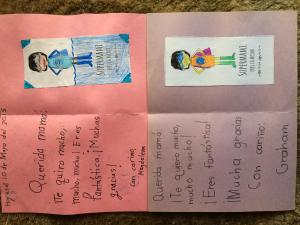 Hoy es el 10 de Mayo del 2015
SUPERMAMI
Querida mamá:
Te quiero mucho,
mucho, mucho! Eres
fantástica. ¡Muchas
gracias!
Con cariño,
SUPERMAMI
Querida mamá:
¡Te quiero mucho,
mucho mucho!
¡Eres fantástica!
¡Mucha gracias
Con cariño:
Graham